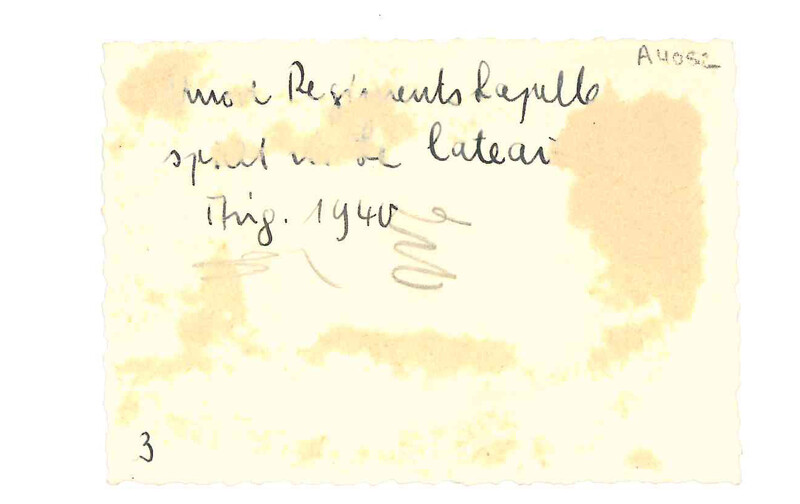 A4052
Regimentskapelle
spielt in Le Cateau
Aug. 1940
3